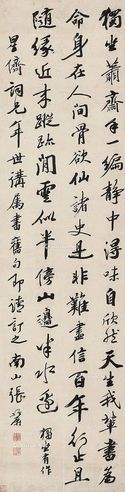 獨坐蕭齋手一編靜中得味自欣然天生我輩書為
命身在人間骨欲仙諸史是非難盡信百年行止且
隨緣近來蹤跡閒雲似半傍山邊半水邊 獨坐有作
星儕詞兄年世講屬書舊句即請訂之 南山張